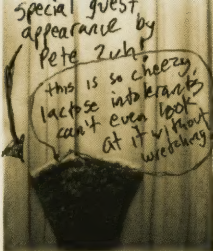 special guest
appearance by
Pete Zuh!
this is so cheezy,
lactose intolerants
can't even look
at it without
wretching